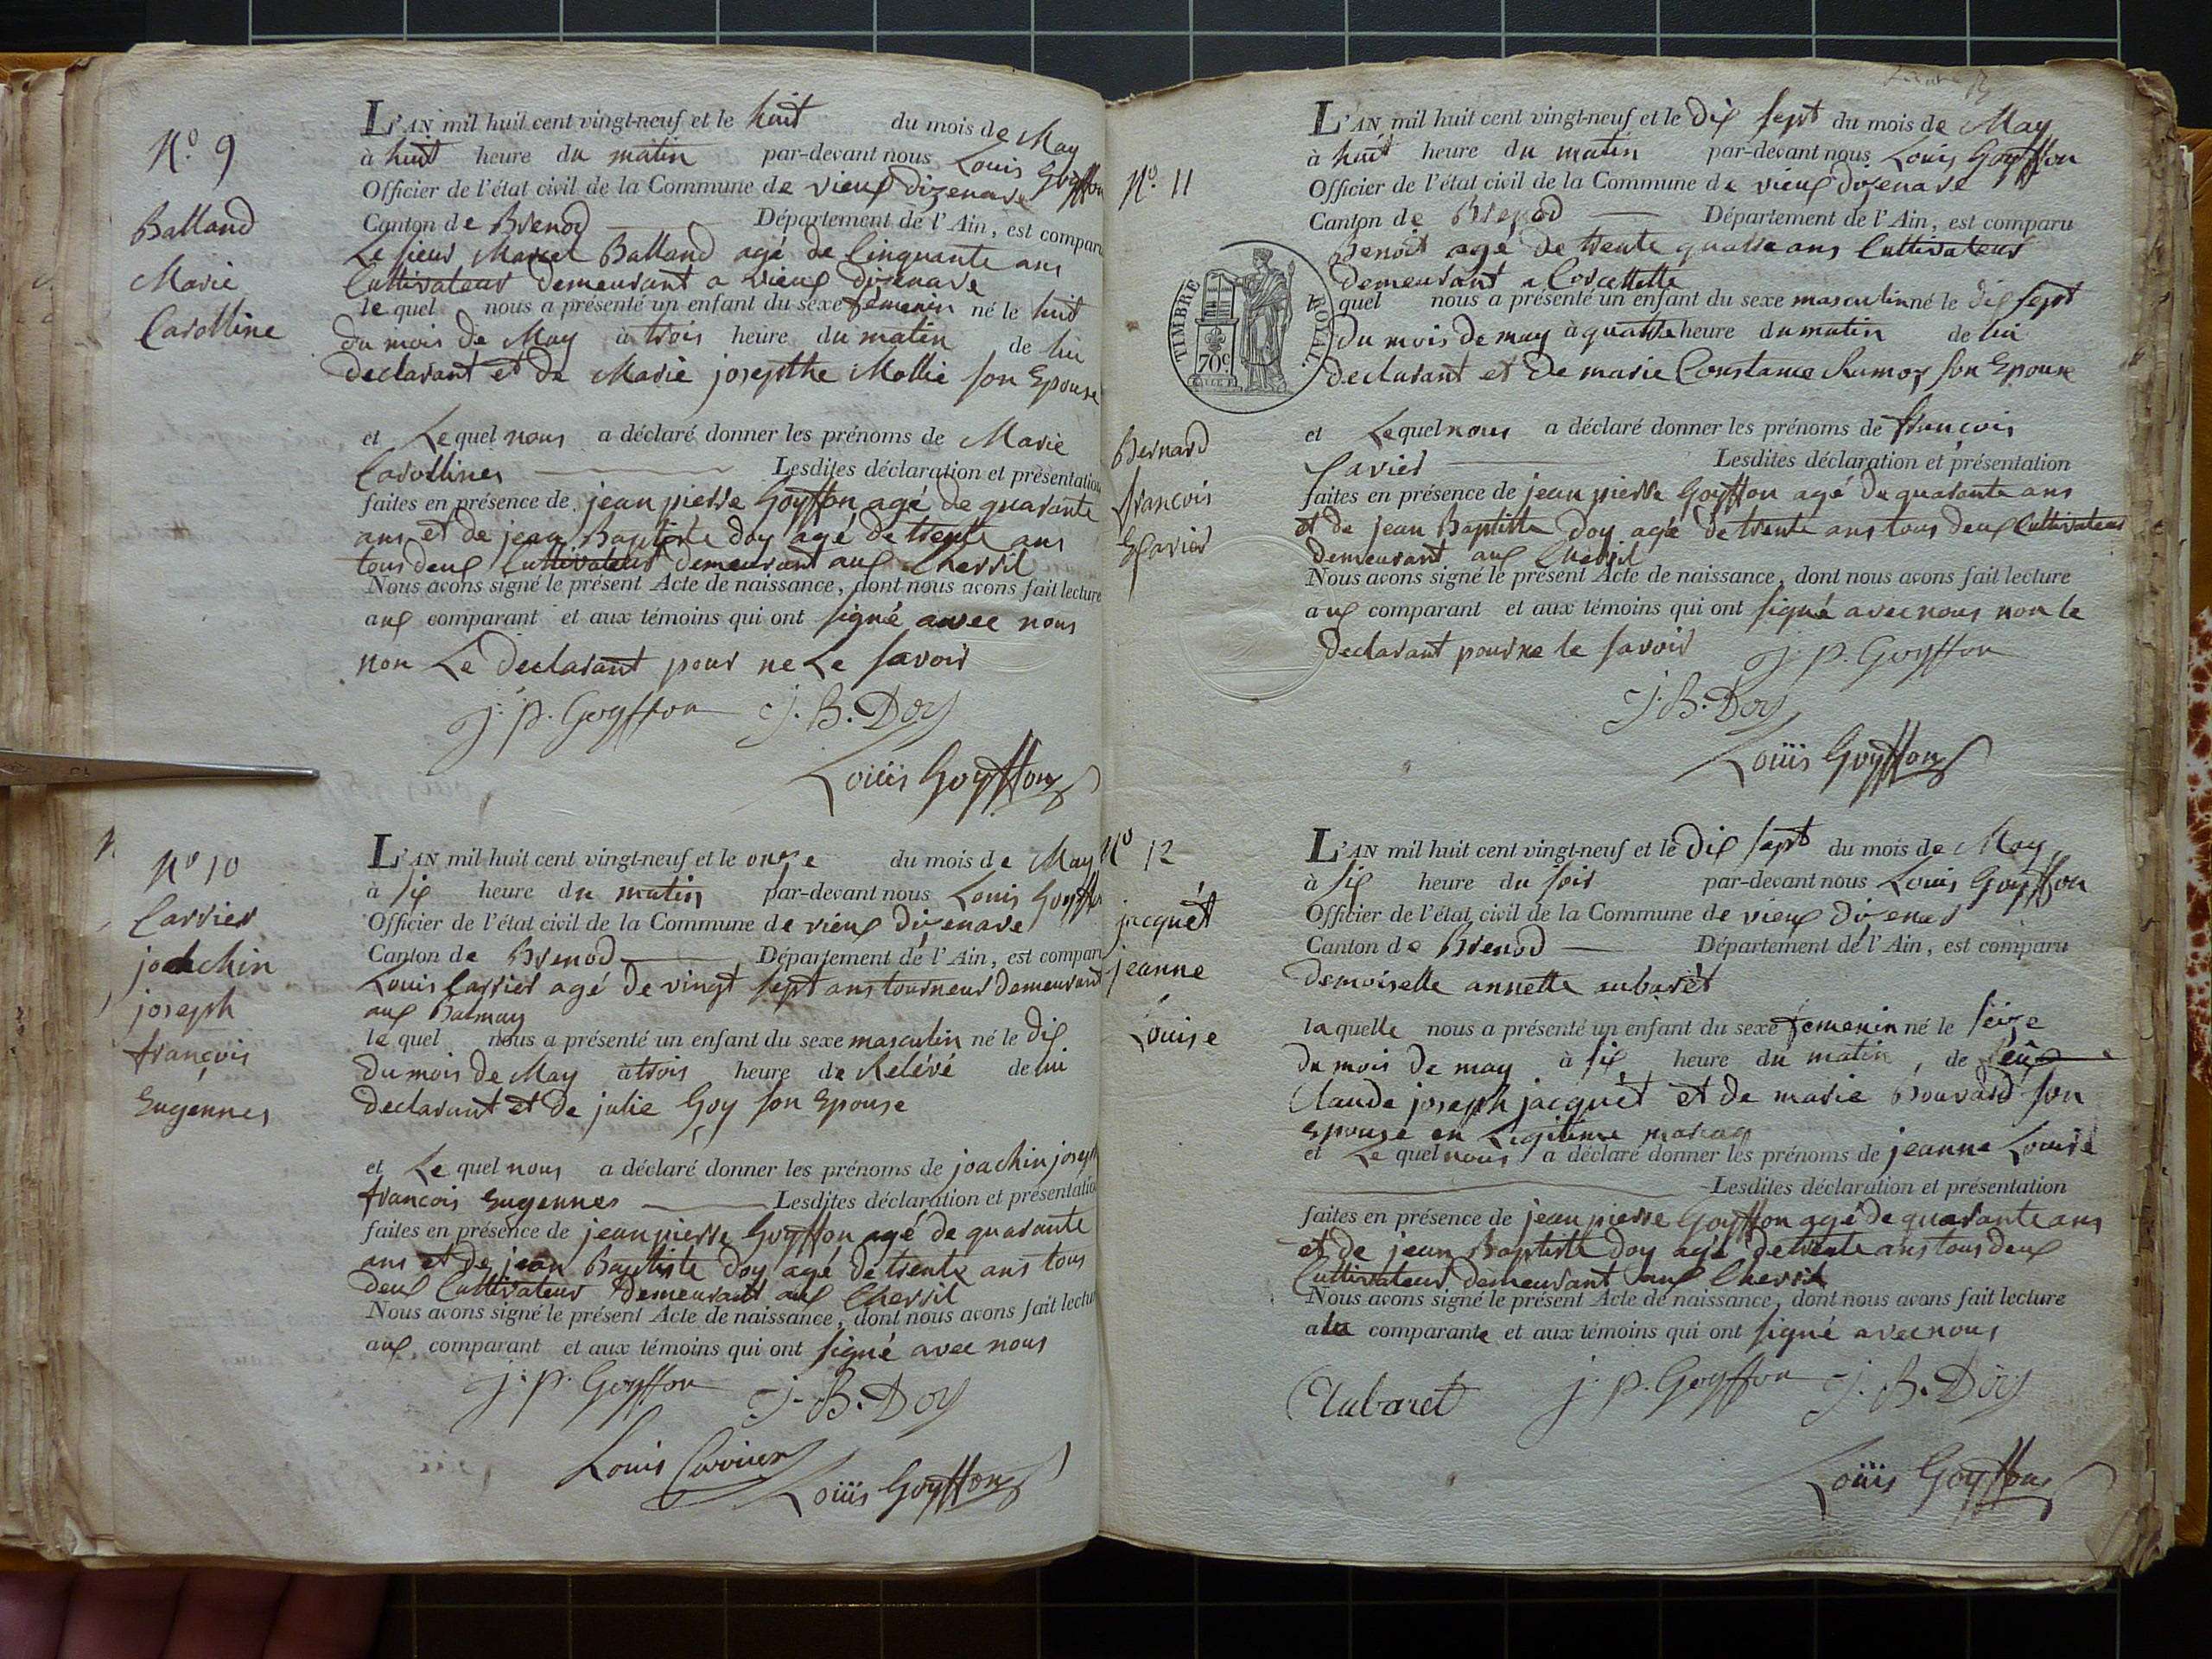 N.º 9
Balland
Marie
Carolline
L'AN mil huit cent vingt-neuf et le huit du mois de May
à huit heure du matin par-devant nous Louis Goyffon
Officier de l'état civil de la Commune de vieux dizenave
Canton de Brenod Département de l'Ain, est comparu
Le sieur Marcel Balland agé de Cinquante ans
Cultivateur demeurant a vieux dizenave
le quel nous a présenté un enfant du sexe femenin né le huit
du mois de May à trois heure du matin de lui
declarant et de Marie josepthe Mollie son Epouse
et Le quel nous a déclaré donner les prénoms de Marie
Carollines Lesdites déclaration et présentation
faites en présence de jean pierre Goyffon agé de quarante
ans et de jean Baptiste doy agé de trente ans
tous deux Cultivateur demeurant aux Cherril
Nous avons signé le présent Acte de naissance, dont nous avons fait lecture
aux comparant et aux témoins qui ont signé avec nous
non Le declarant pour ne Le savoir
J. P. Goyffon J. B. Doy
Louis Goyffon
Nº 10
Carrier
joachin
joseph
françois
Eugennes
L'AN mil huit cent vingt-neuf et le onze du mois de May
à six heure du matin par-devant nous Louis Goyffon
Officier de l'état civil de la Commune de vieux dizenave
Canton de Brenod Département de l'Ain, est comparu
Louis Carrier agé de vingt sept ans tourneur demeurant
aux Balmay
le quel nous a présenté un enfant du sexe masculin né le dix
du mois de May à trois heure de Relévé de lui
declarant et de julie Goy son Epouse
et Le quel nous a déclaré donner les prénoms de joachin joseph
francois Eugennes Lesdites déclaration et présentation
faites en présence de jean pierre Goyffon agé de quarante
ans et de jean Baptiste doy agé de trente ans tous
deux Cultivateur demeurant aux Cherril
Nous avons signé le présent Acte de naissance, dont nous avons fait lecture
aux comparant et aux témoins qui ont signé avec nous
J. P. Goyffon J. B. Doy
Louis Carrier Louis Goyffon
Nº 11
TIMBRE ROYAL
70 c
Bernard
francois
Xavier
L'AN mil huit cent vingt-neuf et le dix sept du mois de May
à huit heure du matin par-devant nous Louis Goyffon
Officier de l'état civil de la Commune de vieux dizenave
Canton de Brenod Département de l'Ain, est comparu
Benoit agé de trente quatre ans Cultivateur
demeurant a Corcellette
le quel nous a présenté un enfant du sexe masculin né le dix sept
du mois de may à quatre heure du matin de lui
declarant et de marie Constance Rumoz son Epouse
et Lequel nous a déclaré donner les prénoms de francois
Xavier Lesdites déclaration et présentation
faites en présence de jean pierre Goyffon agé de quarante ans
et de jean Baptiste doy agé de trente ans tous deux Cultivateur
demeurant aux Cherril
Nous avons signé le présent Acte de naissance, dont nous avons fait lecture
aux comparant et aux témoins qui ont signé avec nous non le
declarant pour ne le savoir J. P. Goyffon
J. B. Doy
Louis Goyffon
Nº 12
jacquet
jeanne
Louise
L'AN mil huit cent vingt-neuf et le dix sept du mois de May
à six heure du soir par-devant nous Louis Goyffon
Officier de l'état civil de la Commune de vieux dizenav
Canton de Brenod Département de l'Ain, est comparu
demoiselle annette aubarèt
la quelle nous a présenté un enfant du sexe femenin né le seize
du mois de may à six heure du matin, de
Claude joseph jacquet et de marie Bouvard son
Epouse en Legitime mariag
et Le quel nous a déclaré donner les prénoms de jeanne Louise
Lesdites déclaration et présentation
faites en présence de jean pierre Goyffon agé de quarante ans
et de jean Baptiste doy agé de trente ans tous deux
Cultivateur demeurant aux Cherril
Nous avons signé le présent Acte de naissance, dont nous avons fait lecture
a la comparante et aux témoins qui ont signé avec nous
Aubaret J. P. Goyffon J. B. Doy
Louis Goyffon